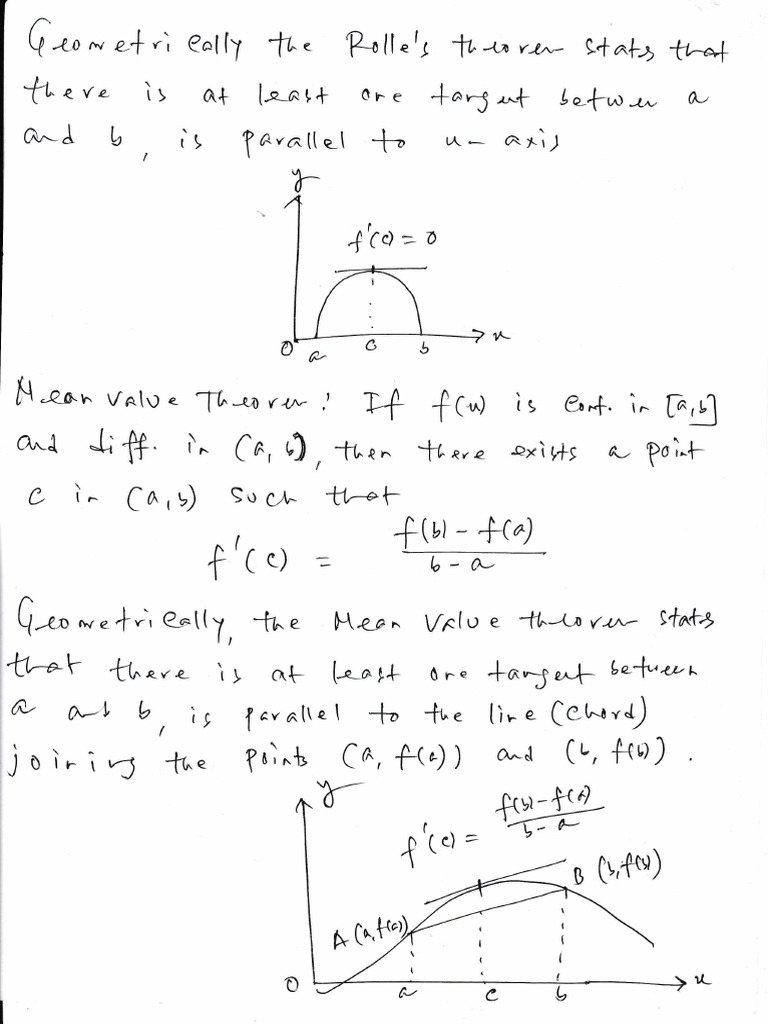 Geometrically the Rolle's theorem states that
there is at least one tangent between a
and b, is parallel to x-axis
y
f'(c) = 0
0 a c b x
Mean Value Theorem: If f(x) is cont. in [a,b]
and diff. in (a, b), then there exists a point
c in (a,b) such that
f'(c) = f(b) - f(a) / b - a
Geometrically, the Mean Value theorem states
that there is at least one tangent between
a and b, is parallel to the line (chord)
joining the points (a, f(a)) and (b, f(b)).
y
f'(c) = f(b) - f(a) / b - a
B (b, f(b))
A (a, f(a))
0 a c b x